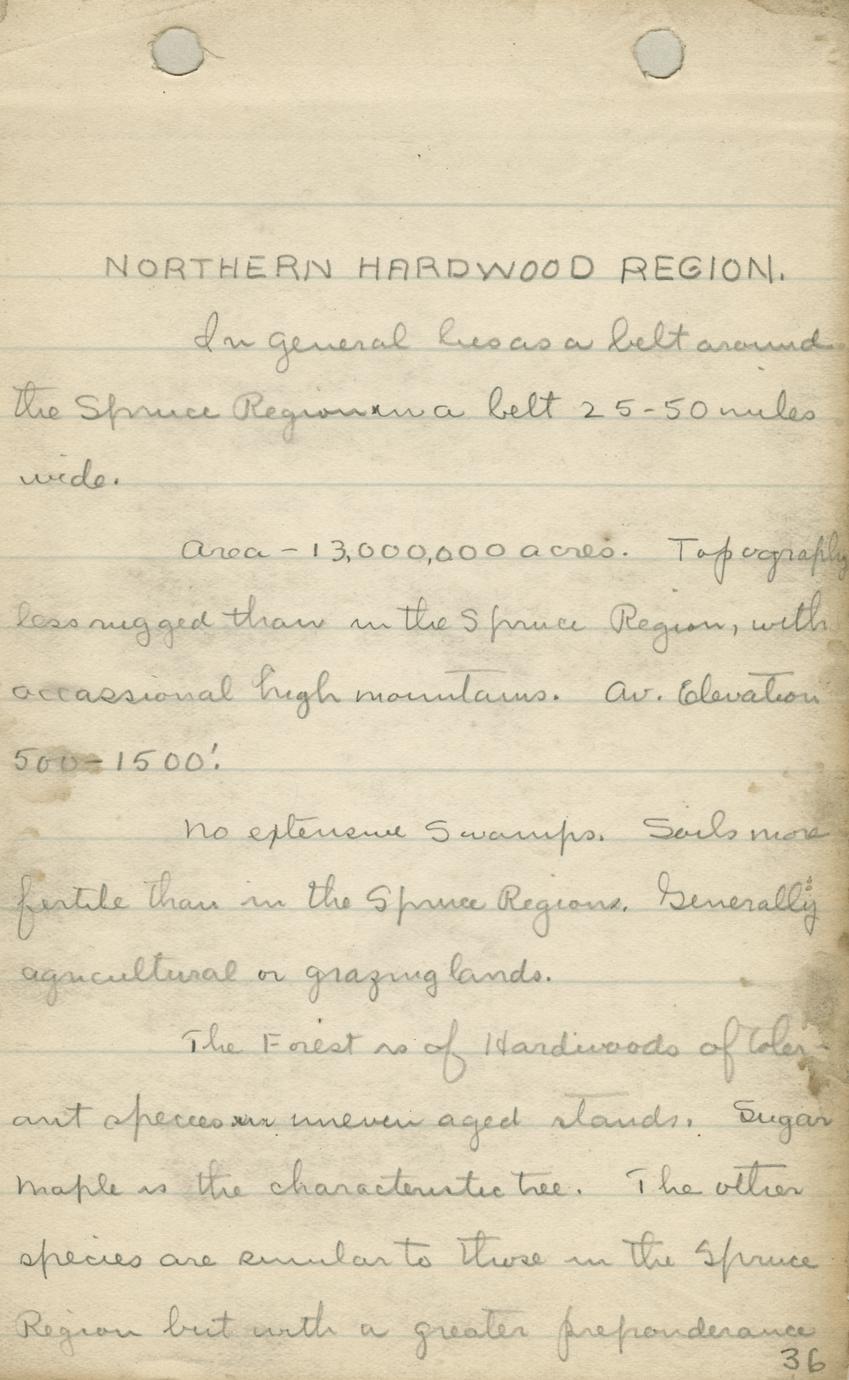 NORTHERN HARDWOOD REGION.
In general lies as a belt around
the Spruce Region in a belt 25-50 miles
wide.
Area - 13,000,000 acres. Topography
less rugged than in the Spruce Region, with
occassional high mountains. Av. Elevation
500-1500'.
No extensive Swamps. Soils more
fertile than in the Spruce Regions. Generally
agricultural or grazing lands.
The Forest is of Hardwoods of toler-
ant species in uneven aged stands. Sugar
Maple is the characteristic tree. The other
species are similar to those in the Spruce
Region but with a greater preponderance
36